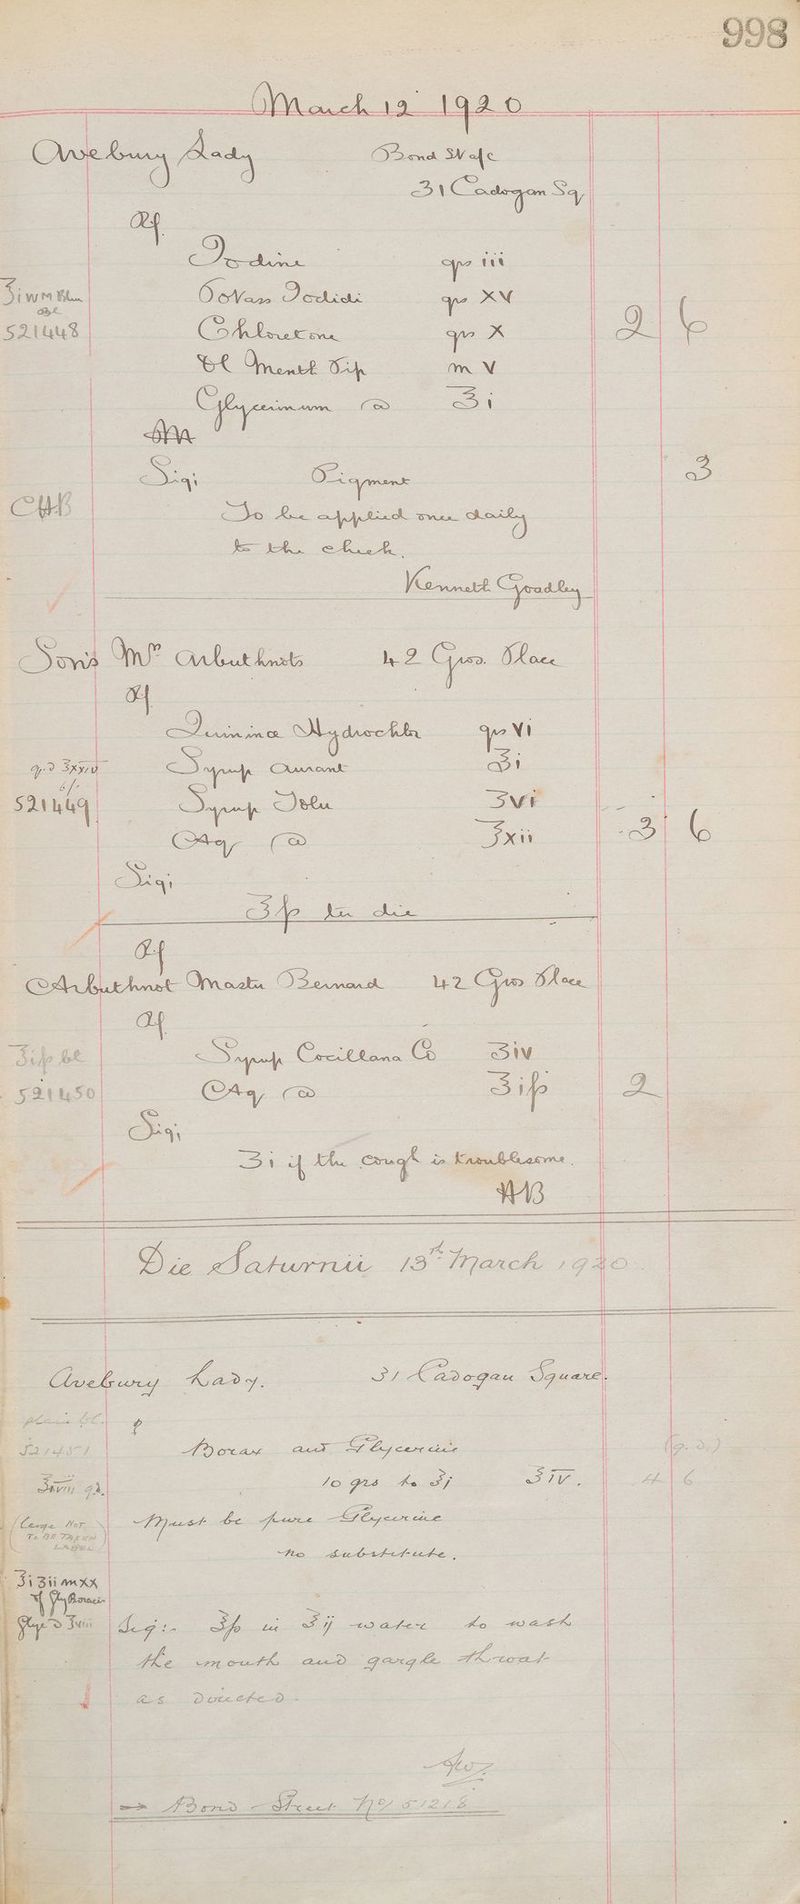 998
March 12 1920
Avebury Lady Bond St a/c
31 Cadogan Sq
Rf
Iodine grs iii
ʒi W M Blue Potass Iodidi grs XV
521448 Chloretone grs X 2 6
Ol Menth Pip m V
Glycerinum @ ℥i
M
Sig; Pigment 3
CHB To be applied once daily
to the cheek.
Kenneth Goadby
Son's Mrs Arbuthnots 42 Gros. Place
Rf
Quininae Hydrochlor grs Vi
q.d ℥xxiv Syrup Aurant ℥i
6/-
521449 Syrup Tolu ʒvi
Aq @ ℥xii 3 6
Sig;
℥ß ter die
Rf
Arbuthnot Master Bernard 42 Gros Place
Rf
℥iß bl Syrup Cocillana Co ʒiv
521450 Aq @ ℥iß 2
Sig;
ʒi if the cough is troublesome.
HB
Die Saturnii 13th March 1920.
Avebury Lady. 31 Cadogan Square.
plain bl. ℞
521451 Borax and Glycerine (q.d.)
℥xviii q.d. 10 grs to ʒj ℥IV. 4 6
(Large NOT Must be pure Glycerine
TO BE TAKEN
LABEL) no substitute.
℥i ʒii mxx
of Gly Boracis
Glyc ad ℥viii Sig:- ℥ß in ℥ij water to wash
the mouth and gargle throat
as directed.
AW.
→ Bond Street No/ 51218